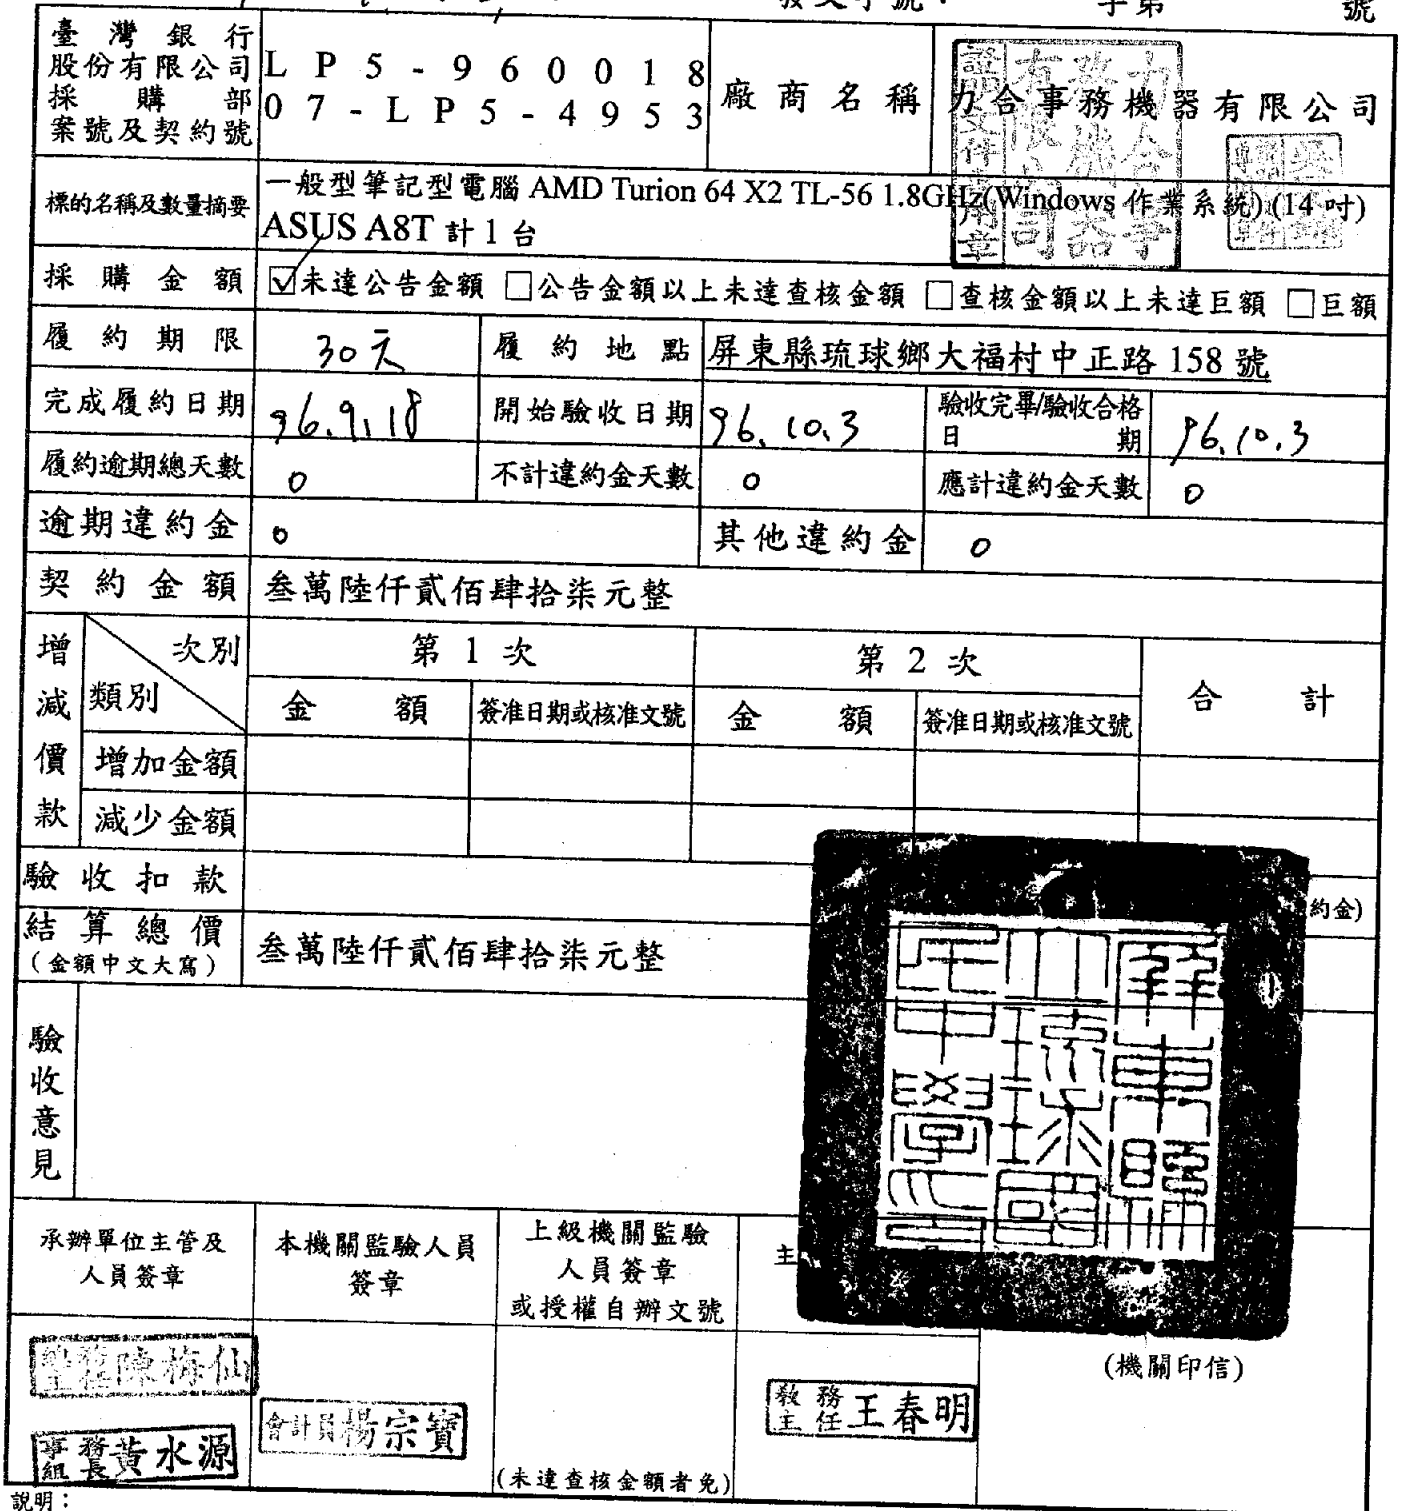 發文字號： 字第 號
臺灣銀行
股份有限公司
採購部
案號及契約號
LP5-960018
07-LP5-4953
廠商名稱
力合事務機器有限公司
標的名稱及數量摘要
一般型筆記型電腦 AMD Turion 64 X2 TL-56 1.8GHz(Windows 作業系統) (14 吋)
ASUS A8T 計 1 台
採購金額
☑未達公告金額 □公告金額以上未達查核金額 □查核金額以上未達巨額 □巨額
履約期限
30天
履約地點
屏東縣琉球鄉大福村中正路 158 號
完成履約日期
96.9.18
開始驗收日期
96.10.3
驗收完畢/驗收合格
日期
96.10.3
履約逾期總天數
0
不計違約金天數
0
應計違約金天數
0
逾期違約金
0
其他違約金
0
契約金額
叁萬陸仟貳佰肆拾柒元整
增減價款
次別
類別
第 1 次
第 2 次
合計
金額
簽准日期或核准文號
金額
簽准日期或核准文號
增加金額
減少金額
驗收扣款
約金)
結算總價
(金額中文大寫)
叁萬陸仟貳佰肆拾柒元整
驗收意見
承辦單位主管及
人員簽章
本機關監驗人員
簽章
上級機關監驗
人員簽章
或授權自辦文號
主
(機關印信)
陳梅仙
事務
組長
黃水源
會計員楊宗寶
教務
主任
王春明
(未達查核金額者免)
說明：